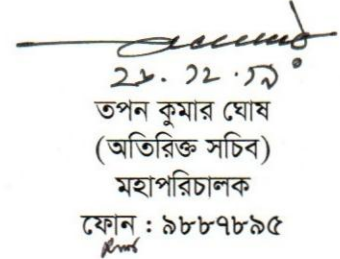 তপন কুমার ঘোষ
(অতিরিক্ত সচিব)
মহাপরিচালক
ফোন : ৯৮৮৭৮৯৫